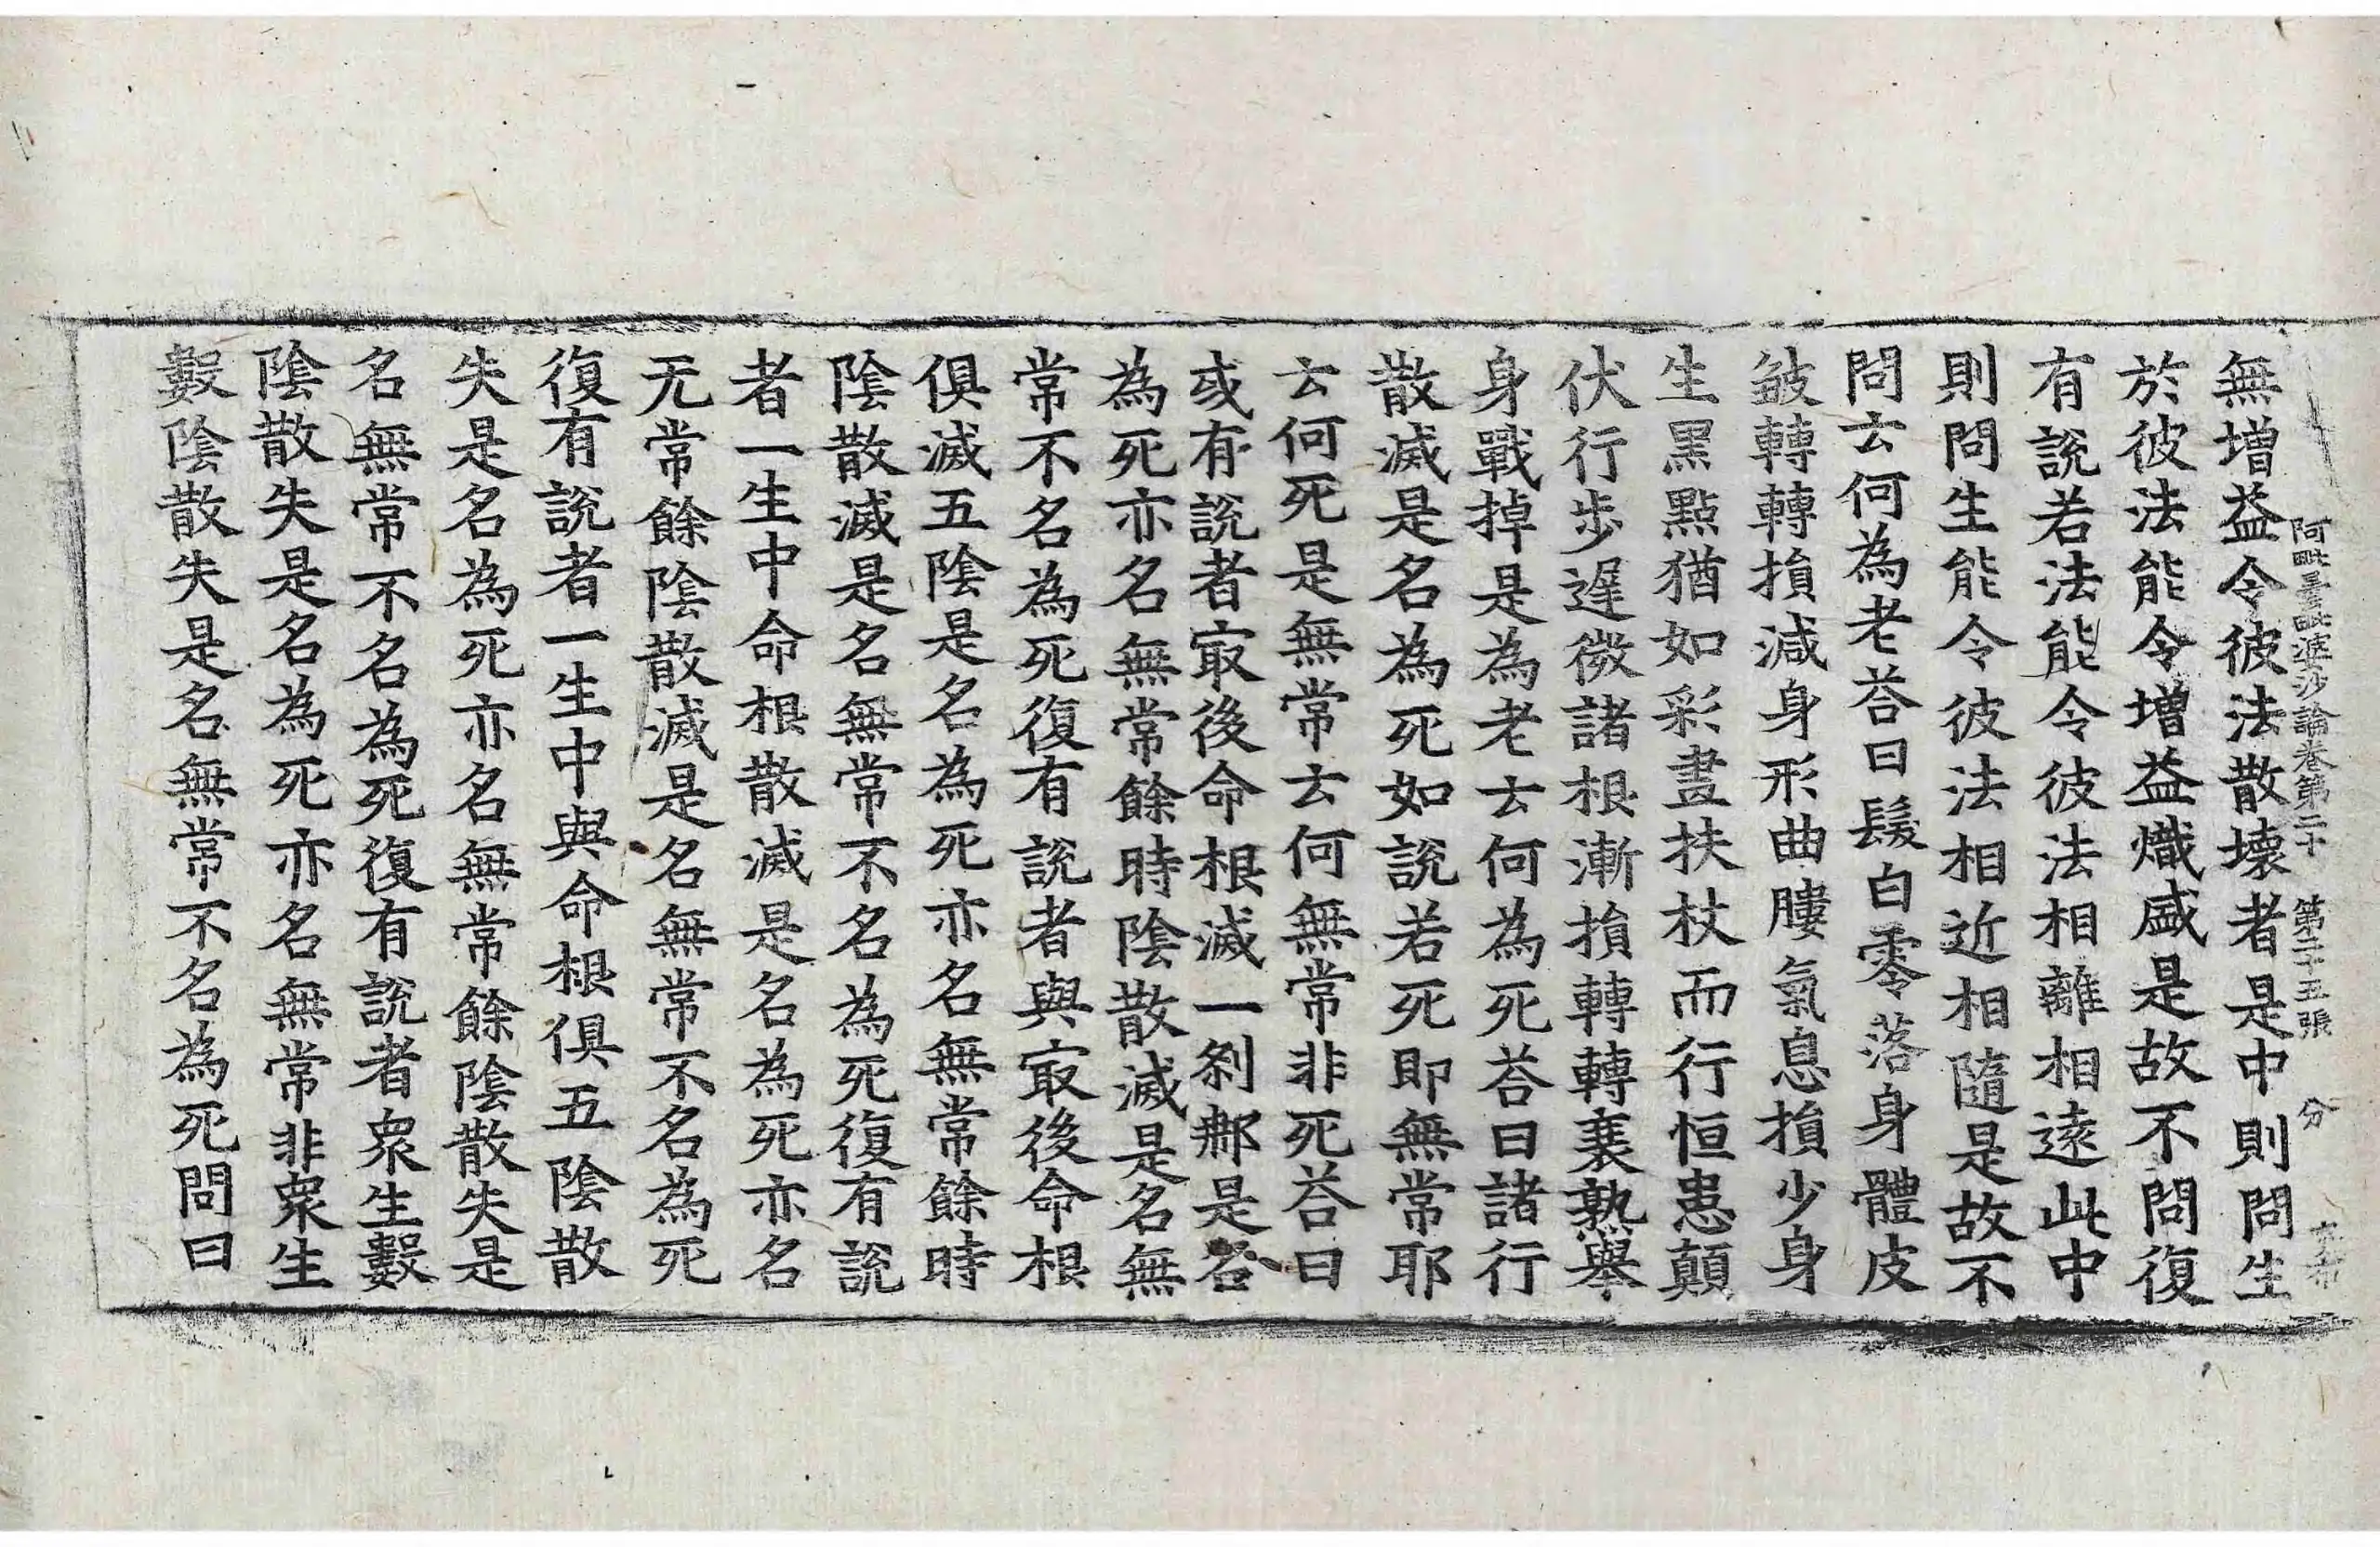 阿毗曇毗婆沙論卷第二十 第二十五張 分
無增益令彼法散壞者是中則問生
於彼法能令增益熾盛是故不問復
有說若法能令彼法相離相遠此中
則問生能令彼法相近相隨是故不
問云何為老荅曰髮白零落身體皮
皱轉轉損減身形曲膢氣息損少身
生黑黶猶如彩畫扶杖而行恒患顛
伏行步遲微諸根漸損轉轉衰熟舉
身戰掉是為老云何為死荅曰諸行
散滅是名為死如說若死即無常耶
云何死是無常云何無常非死荅曰
或有說者㝡後命根滅一剎那是名
為死亦名無常餘時陰散滅是名無
常不名為死復有說者與㝡後命根
俱滅五陰是名為死亦名無常餘時
陰散滅是名無常不名為死復有說
者一生中命根散滅是名為死亦名
无常餘陰散滅是名無常不名為死
復有說者一生中與命根俱五陰散
失是名為死亦名無常餘陰散失是
名無常不名為死復有說者衆生數
陰散失是名為死亦名無常非衆生
數陰散失是名無常不名為死問曰